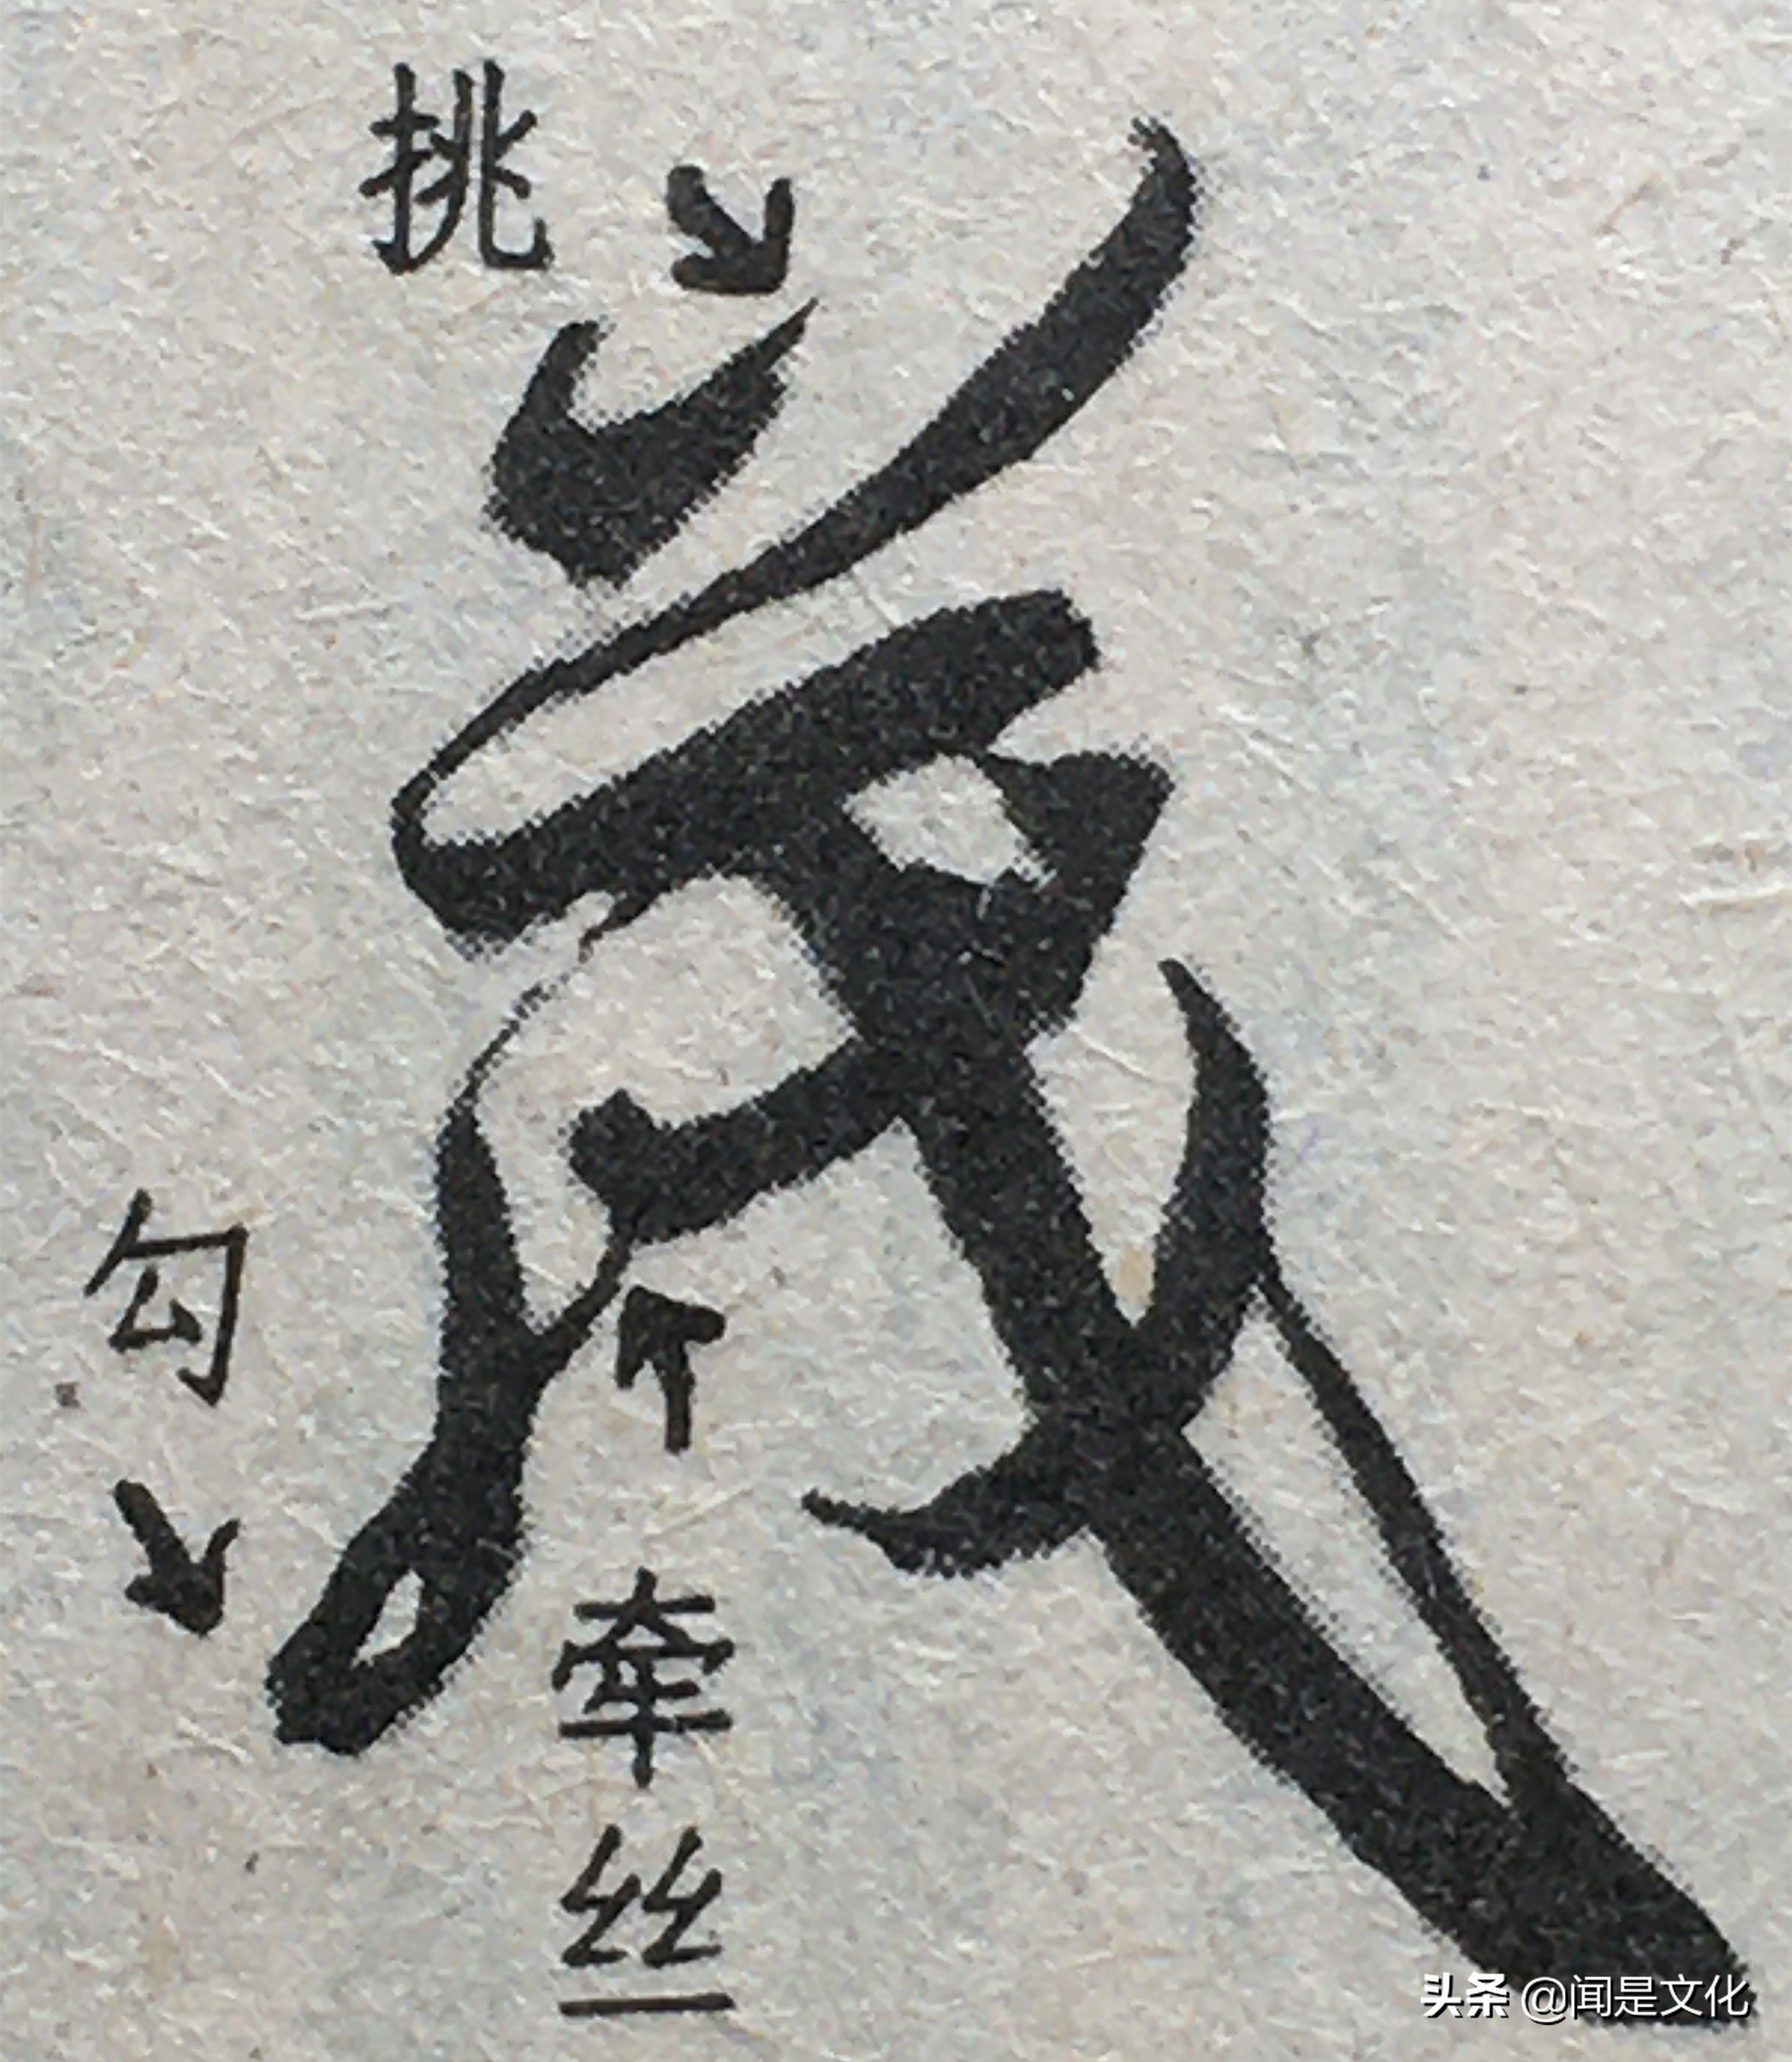 挑
茂
勾
牵丝
头条 @闻是文化